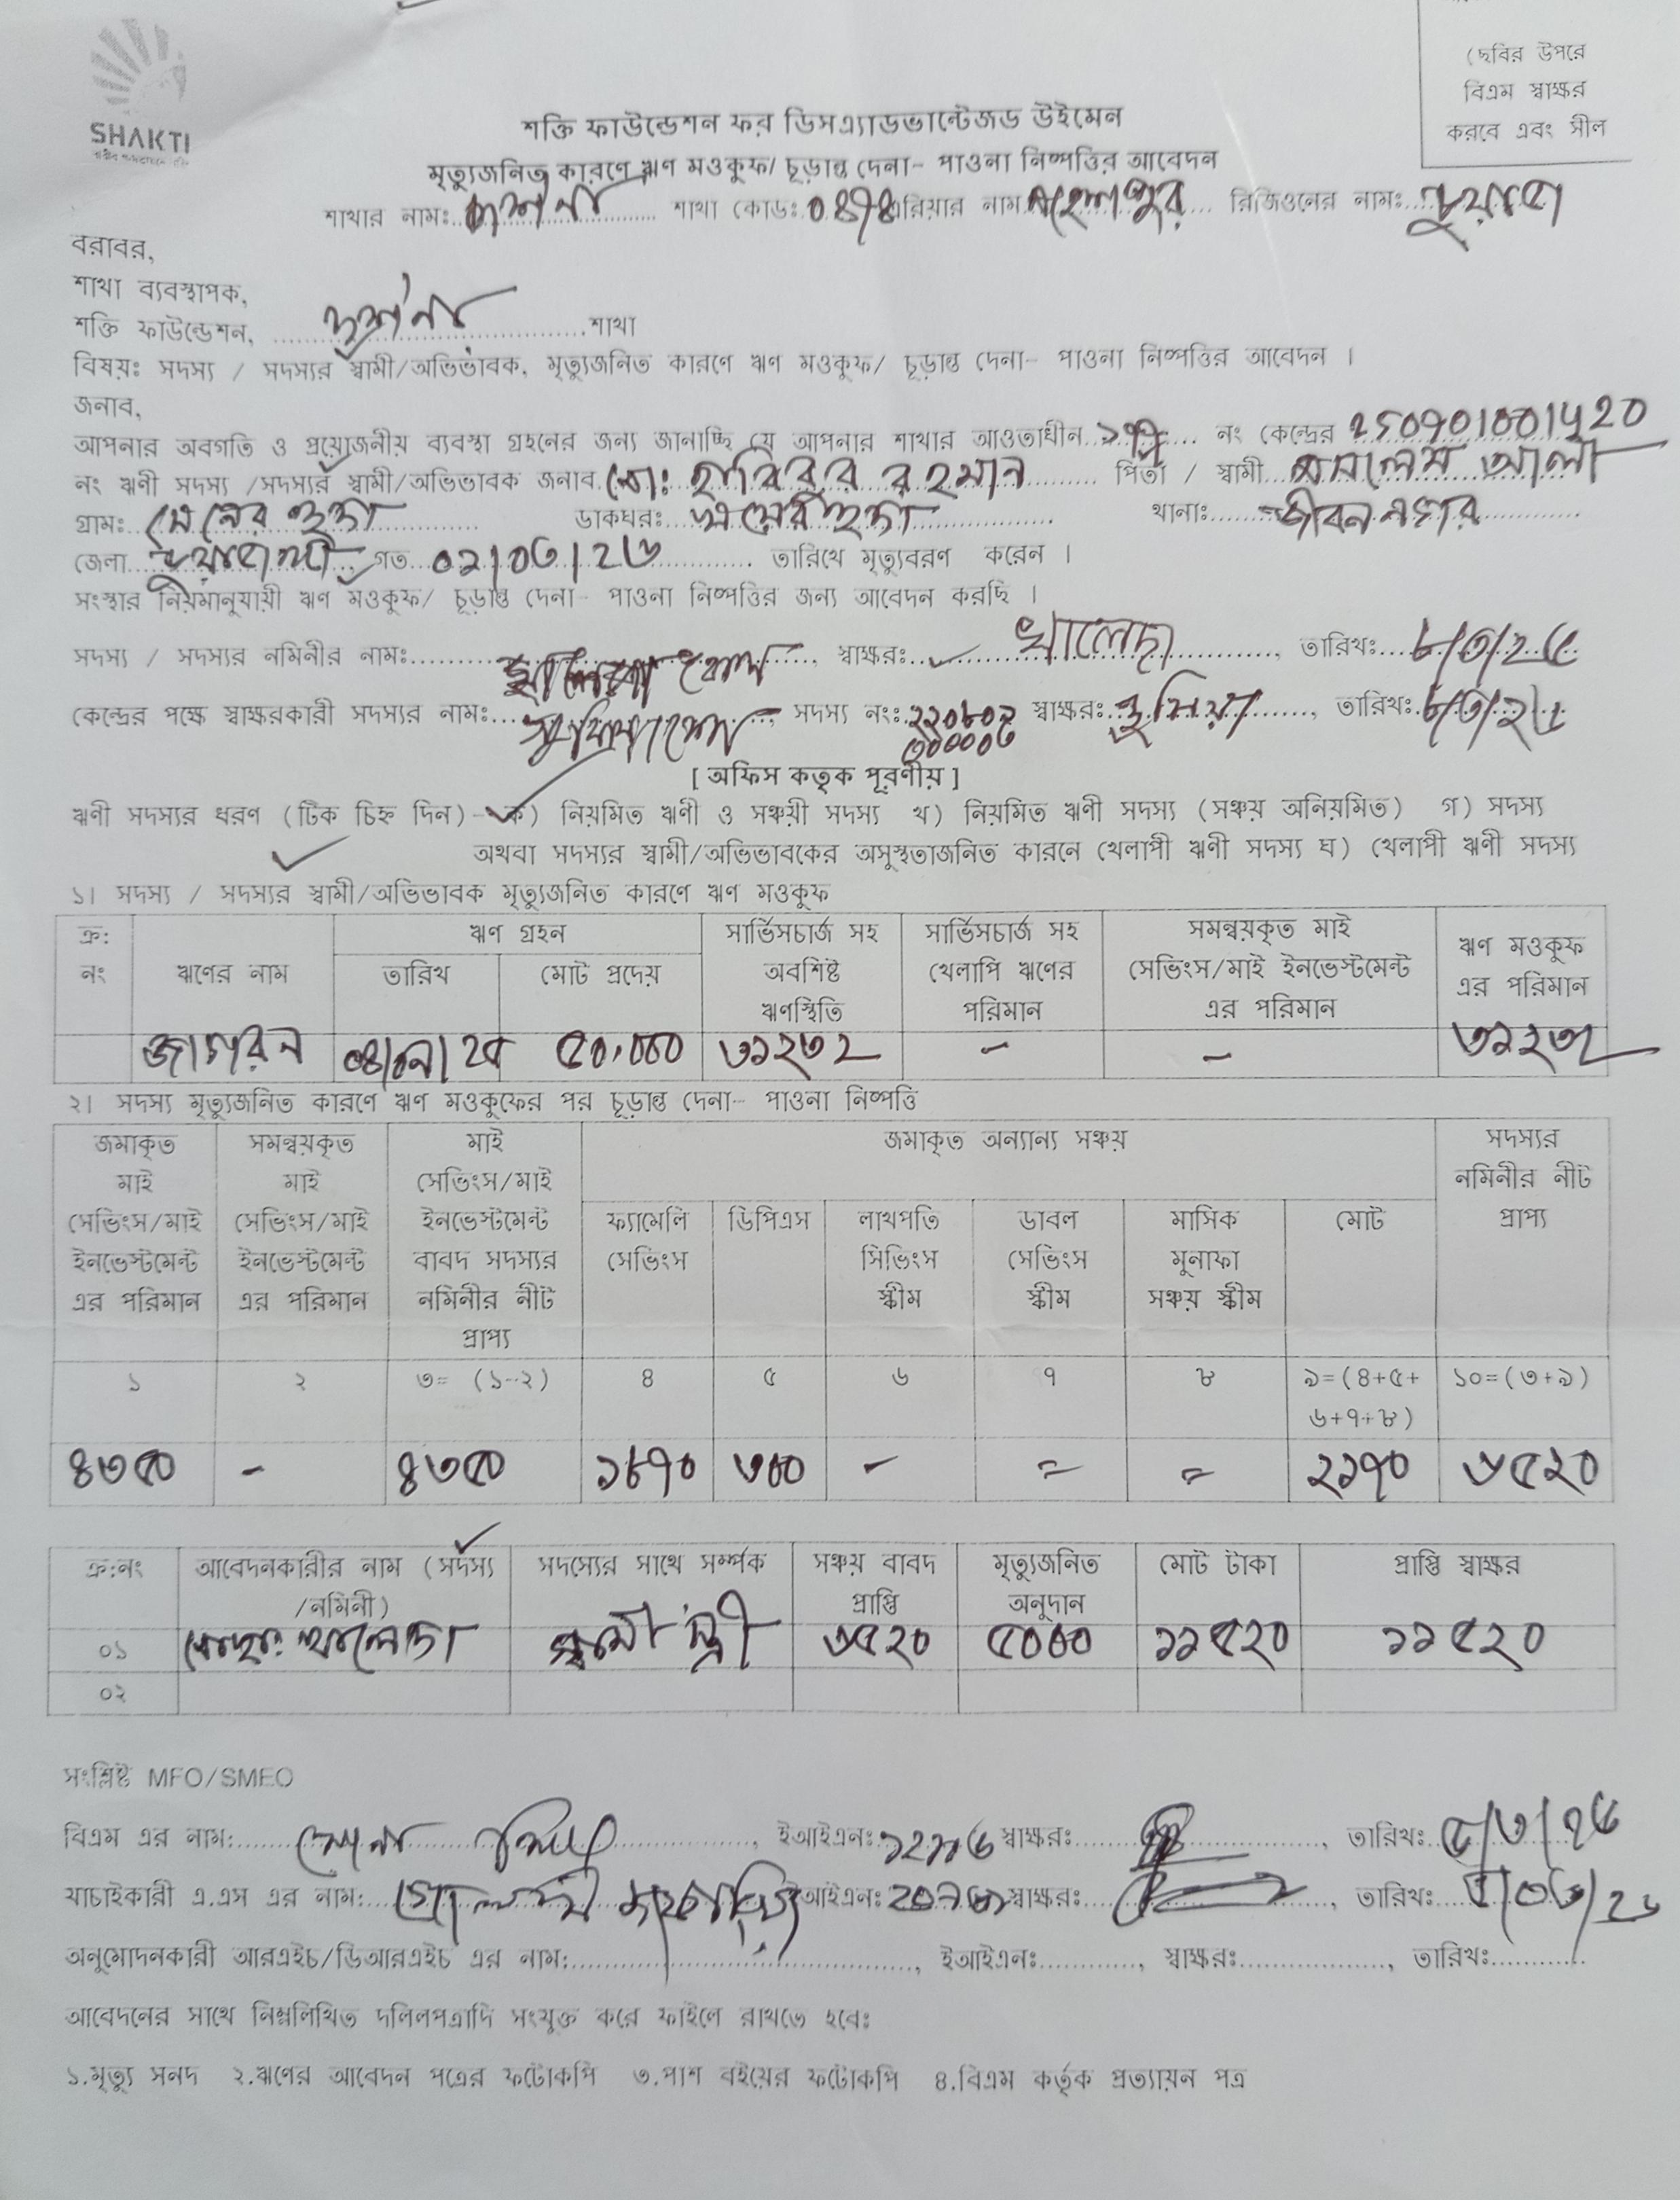 (ছবির উপরে
বিএম স্বাক্ষর
করবে এবং সীল
SHAKTI
শক্তি ফাউন্ডেশন ফর ডিসএ্যাডভান্টেজড উইমেন
মৃত্যুজনিত কারণে ঋণ মওকুফ/ চূড়ান্ত দেনা- পাওনা নিষ্পত্তির আবেদন
শাখার নাম: দর্শনা শাখা কোড: এরিয়ার নাম মহেশপুর রিজিওনের নাম:
বরাবর,
শাখা ব্যবস্থাপক,
শক্তি ফাউন্ডেশন, দর্শনা শাখা
বিষয়ঃ সদস্য / সদস্যর স্বামী/অভিভাবক, মৃত্যুজনিত কারণে ঋণ মওকুফ/ চূড়ান্ত দেনা- পাওনা নিষ্পত্তির আবেদন ।
জনাব,
আপনার অবগতি ও প্রয়োজনীয় ব্যবস্থা গ্রহনের জন্য জানাচ্ছি যে আপনার শাখার আওতাধীন নং কেন্দ্রের
নং ঋণী সদস্য /সদস্যর স্বামী/অভিভাবক জনাব মোঃ হাবিবুর রহমান পিতা / স্বামী আলী
গ্রামঃ ডাকঘরঃ থানাঃ জীবননগর
জেলা গত ০২/০৩/২৬ তারিখে মৃত্যুবরণ করেন ।
সংস্থার নিয়মানুযায়ী ঋণ মওকুফ/ চূড়ান্ত দেনা- পাওনা নিষ্পত্তির জন্য আবেদন করছি ।
সদস্য / সদস্যর নমিনীর নামঃ , স্বাক্ষরঃ খালেদা , তারিখঃ
কেন্দ্রের পক্ষে স্বাক্ষরকারী সদস্যর নামঃ , সদস্য নংঃ স্বাক্ষরঃ , তারিখঃ
[ অফিস কতৃক পূরণীয় ]
ঋণী সদস্যর ধরণ (টিক চিহ্ন দিন)- ক) নিয়মিত ঋণী ও সঞ্চয়ী সদস্য খ) নিয়মিত ঋণী সদস্য (সঞ্চয় অনিয়মিত) গ) সদস্য
অথবা সদস্যর স্বামী/অভিভাবকের অসুস্থতাজনিত কারনে খেলাপী ঋণী সদস্য ঘ) খেলাপী ঋণী সদস্য
১। সদস্য / সদস্যর স্বামী/অভিভাবক মৃত্যুজনিত কারণে ঋণ মওকুফ
ক্র: নং ঋণের নাম ঋণ গ্রহন তারিখ মোট প্রদেয় সার্ভিসচার্জ সহ অবশিষ্ট ঋণস্থিতি সার্ভিসচার্জ সহ খেলাপি ঋণের পরিমান সমন্বয়কৃত মাই সেভিংস/মাই ইনভেস্টমেন্ট এর পরিমান ঋণ মওকুফ এর পরিমান
জাগরন ৫০,০০০ ৩১২৩২ - - ৩১২৩২
২। সদস্য মৃত্যুজনিত কারণে ঋণ মওকুফের পর চূড়ান্ত দেনা- পাওনা নিষ্পত্তি
জমাকৃত মাই সেভিংস/মাই ইনভেস্টমেন্ট এর পরিমান সমন্বয়কৃত মাই সেভিংস/মাই ইনভেস্টমেন্ট এর পরিমান মাই সেভিংস/মাই ইনভেস্টমেন্ট বাবদ সদস্যর নমিনীর নীট প্রাপ্য জমাকৃত অন্যান্য সঞ্চয় সদস্যর নমিনীর নীট প্রাপ্য
ফ্যামেলি সেভিংস ডিপিএস লাখপতি সিভিংস স্কীম ডাবল সেভিংস স্কীম মাসিক মুনাফা সঞ্চয় স্কীম মোট
১ ২ ৩= (১-২) ৪ ৫ ৬ ৭ ৮ ৯=(৪+৫+ ৬+৭+৮) ১০=(৩+৯)
৪৩৫০ - ৪৩৫০ ১৮৭০ ৩০০ - = = ২১৭০ ৬৫২০
ক্র:নং আবেদনকারীর নাম (সদস্য /নমিনী) সদস্যের সাথে সর্ম্পক সঞ্চয় বাবদ প্রাপ্তি মৃত্যুজনিত অনুদান মোট টাকা প্রাপ্তি স্বাক্ষর
০১ মোছাঃ খালেদা স্ত্রী ৬৫২০ ৫০০০ ১১৫২০ ১১৫২০
০২
সংশ্লিষ্ট MFO/SMEO
বিএম এর নাম: , ইআইএনঃ স্বাক্ষরঃ , তারিখঃ
যাচাইকারী এ.এস এর নাম: ইআইএনঃ স্বাক্ষরঃ , তারিখঃ
অনুমোদনকারী আরএইচ/ডিআরএইচ এর নাম: , ইআইএনঃ , স্বাক্ষরঃ , তারিখঃ
আবেদনের সাথে নিম্নলিখিত দলিলপত্রাদি সংযুক্ত করে ফাইলে রাখতে হবেঃ
১.মৃত্যু সনদ ২.ঋণের আবেদন পত্রের ফটোকপি ৩.পাশ বইয়ের ফটোকপি ৪.বিএম কর্তৃক প্রত্যায়ন পত্র